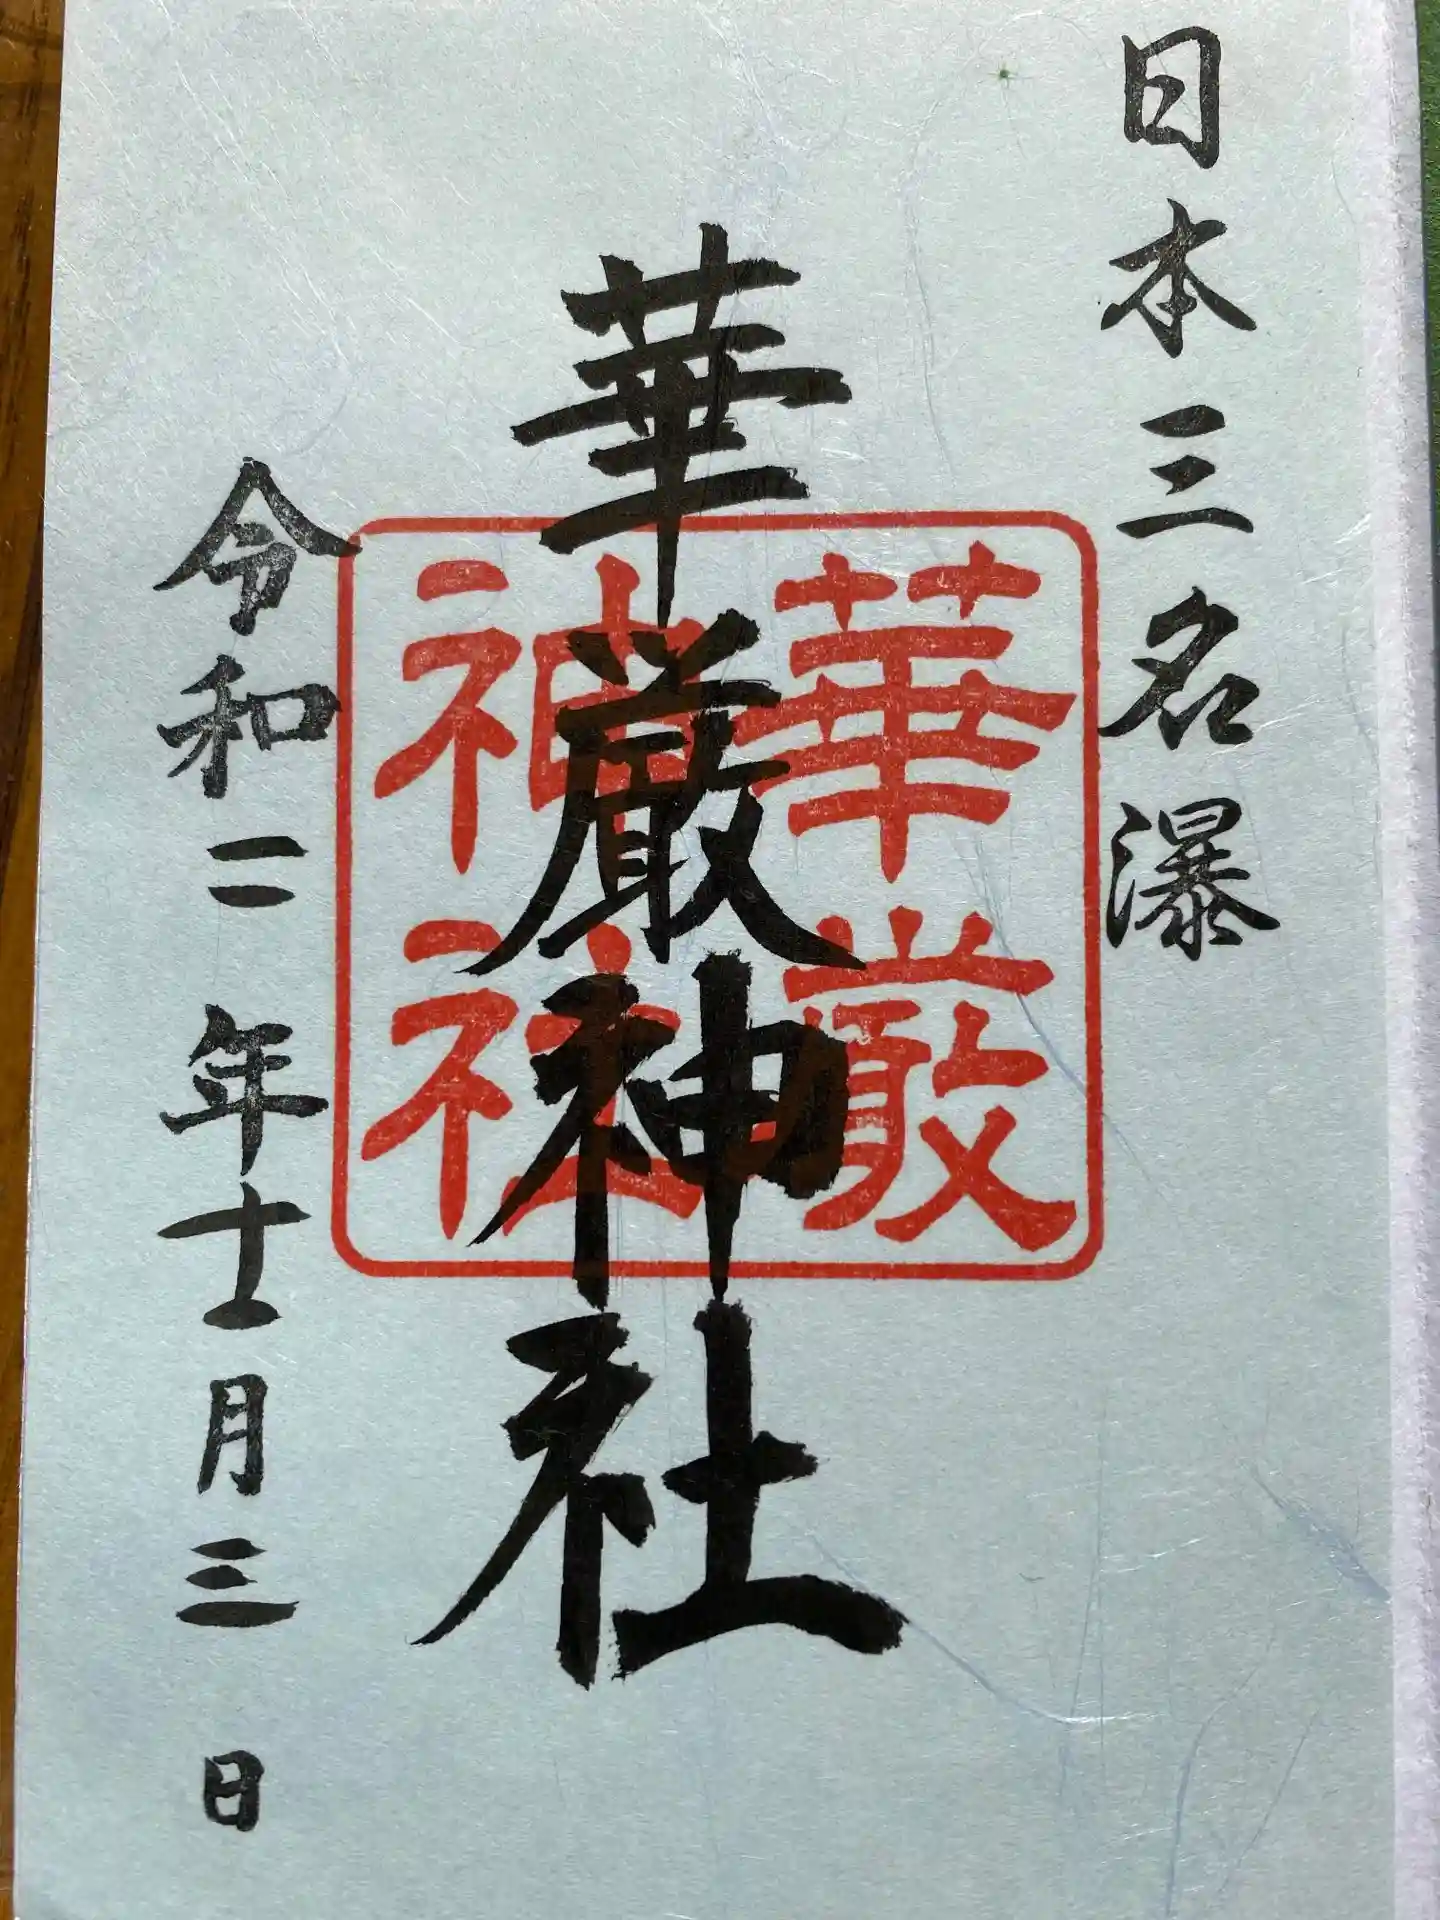 日本三名瀑
華厳神社
華厳
神社
令和二年十一月三日